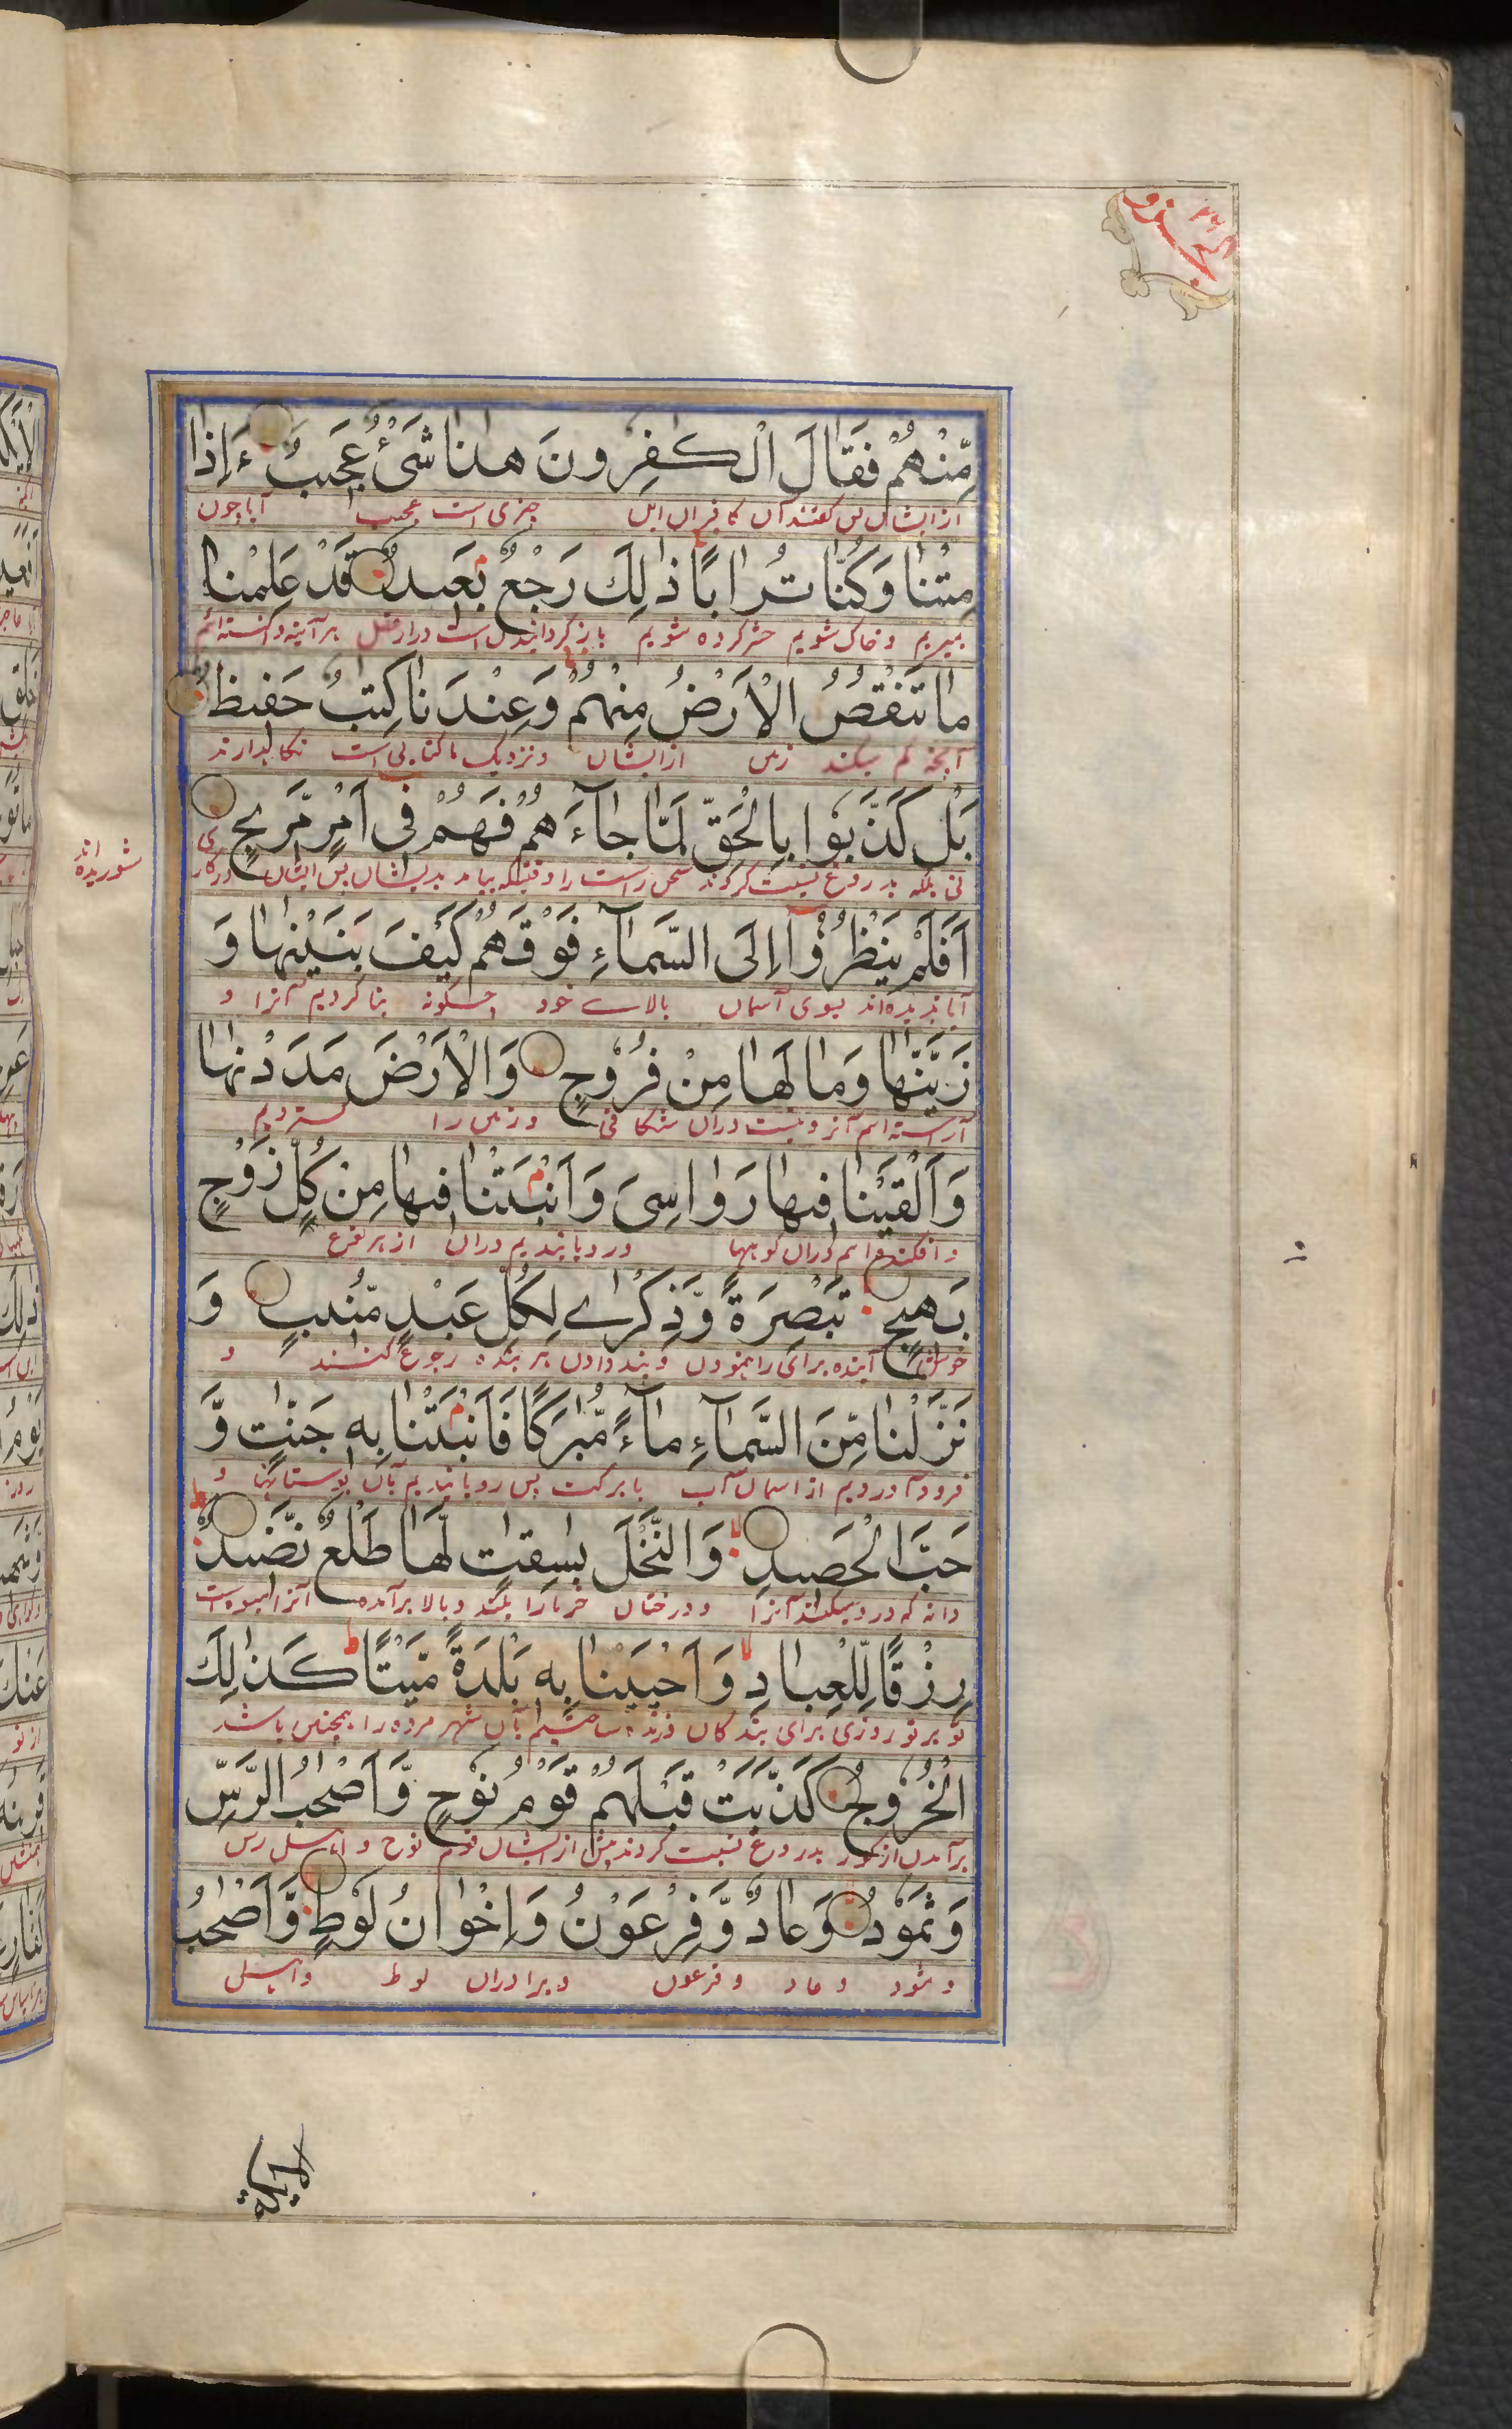 الجزو ٢٦
مِّنْهُمْ فَقَالَ الْكٰفِرُونَ هٰذَا شَىْءٌ عَجِيبٌ ءَاِذَا
از ایشان پس گفتند آن کافران این چیزی است عجیب آیا چون
مِتْنَا وَكُنَّا تُرَابًا ذٰلِكَ رَجْعٌ بَعِيدٌ قَدْ عَلِمْنَا
بمیریم و خاک شویم حشر کرده شویم باز گردانیدن است دور از عقل هر آینه دانسته ایم
مَا تَنْقُصُ الْاَرْضُ مِنْهُمْ وَعِنْدَنَا كِتٰبٌ حَفِيظٌ
آنچه کم میکند زمین از ایشان و نزدیک ما کتابی است نگاهدارنده
بَلْ كَذَّبُوا بِالْحَقِّ لَمَّا جَآءَهُمْ فَهُمْ فِى اَمْرٍ مَّرِيجٍ
نی بلکه بدروغ نسبت کردند سخن راست را وقتیکه بیامد بدیشان پس ایشان در کاری
شوریده اند
اَفَلَمْ يَنْظُرُوْٓا اِلَى السَّمَآءِ فَوْقَهُمْ كَيْفَ بَنَيْنٰهَا وَ
آیا ندیده اند بسوی آسمان بالاے خود چگونه بنا کردیم آنرا و
زَيَّنّٰهَا وَمَا لَهَا مِنْ فُرُوْجٍ وَالْاَرْضَ مَدَدْنٰهَا
آراسته ایم آنرا و نیست دران شگافی و زمین را گستردیم
وَاَلْقَيْنَا فِيهَا رَوَاسِىَ وَاَنْبَتْنَا فِيهَا مِنْ كُلِّ زَوْجٍ
و افکنده ایم دران کوهها و رویانیدیم دران از هر نوع
بَهِيجٍ تَبْصِرَةً وَّذِكْرٰے لِكُلِّ عَبْدٍ مُّنِيبٍ وَ
آینده برای راه نمودن و پند دادن هر بنده رجوع کننده و
نَزَّلْنَا مِنَ السَّمَآءِ مَآءً مُّبٰرَكًا فَاَنْبَتْنَا بِهٖ جَنّٰتٍ وَّ
فرود آوردیم از آسمان آب با برکت پس رویانیدیم بآن بوستانها و
حَبَّ الْحَصِيدِ وَالنَّخْلَ بٰسِقٰتٍ لَّهَا طَلْعٌ نَّضِيدٌ
دانه که درو میکنند آنرا و درختان خرما را بلند و بالا برآمده آنرا میوه است
رِزْقًا لِّلْعِبَادِ وَاَحْيَيْنَا بِهٖ بَلْدَةً مَّيْتًا كَذٰلِكَ
تو بر تو روزی برای بندگان و زنده ساختیم بآن شهر مرده را همچنین باشد
الْخُرُوْجُ كَذَّبَتْ قَبْلَهُمْ قَوْمُ نُوْحٍ وَّاَصْحٰبُ الرَّسِّ
برآمدن از گور بدروغ نسبت کردند پیش از ایشان قوم نوح و اهل رس
وَثَمُوْدُ وَعَادٌ وَّفِرْعَوْنُ وَاِخْوَانُ لُوْطٍ وَّاَصْحٰبُ
و ثمود و عاد و فرعون و برادران لوط و اهل
الایکة